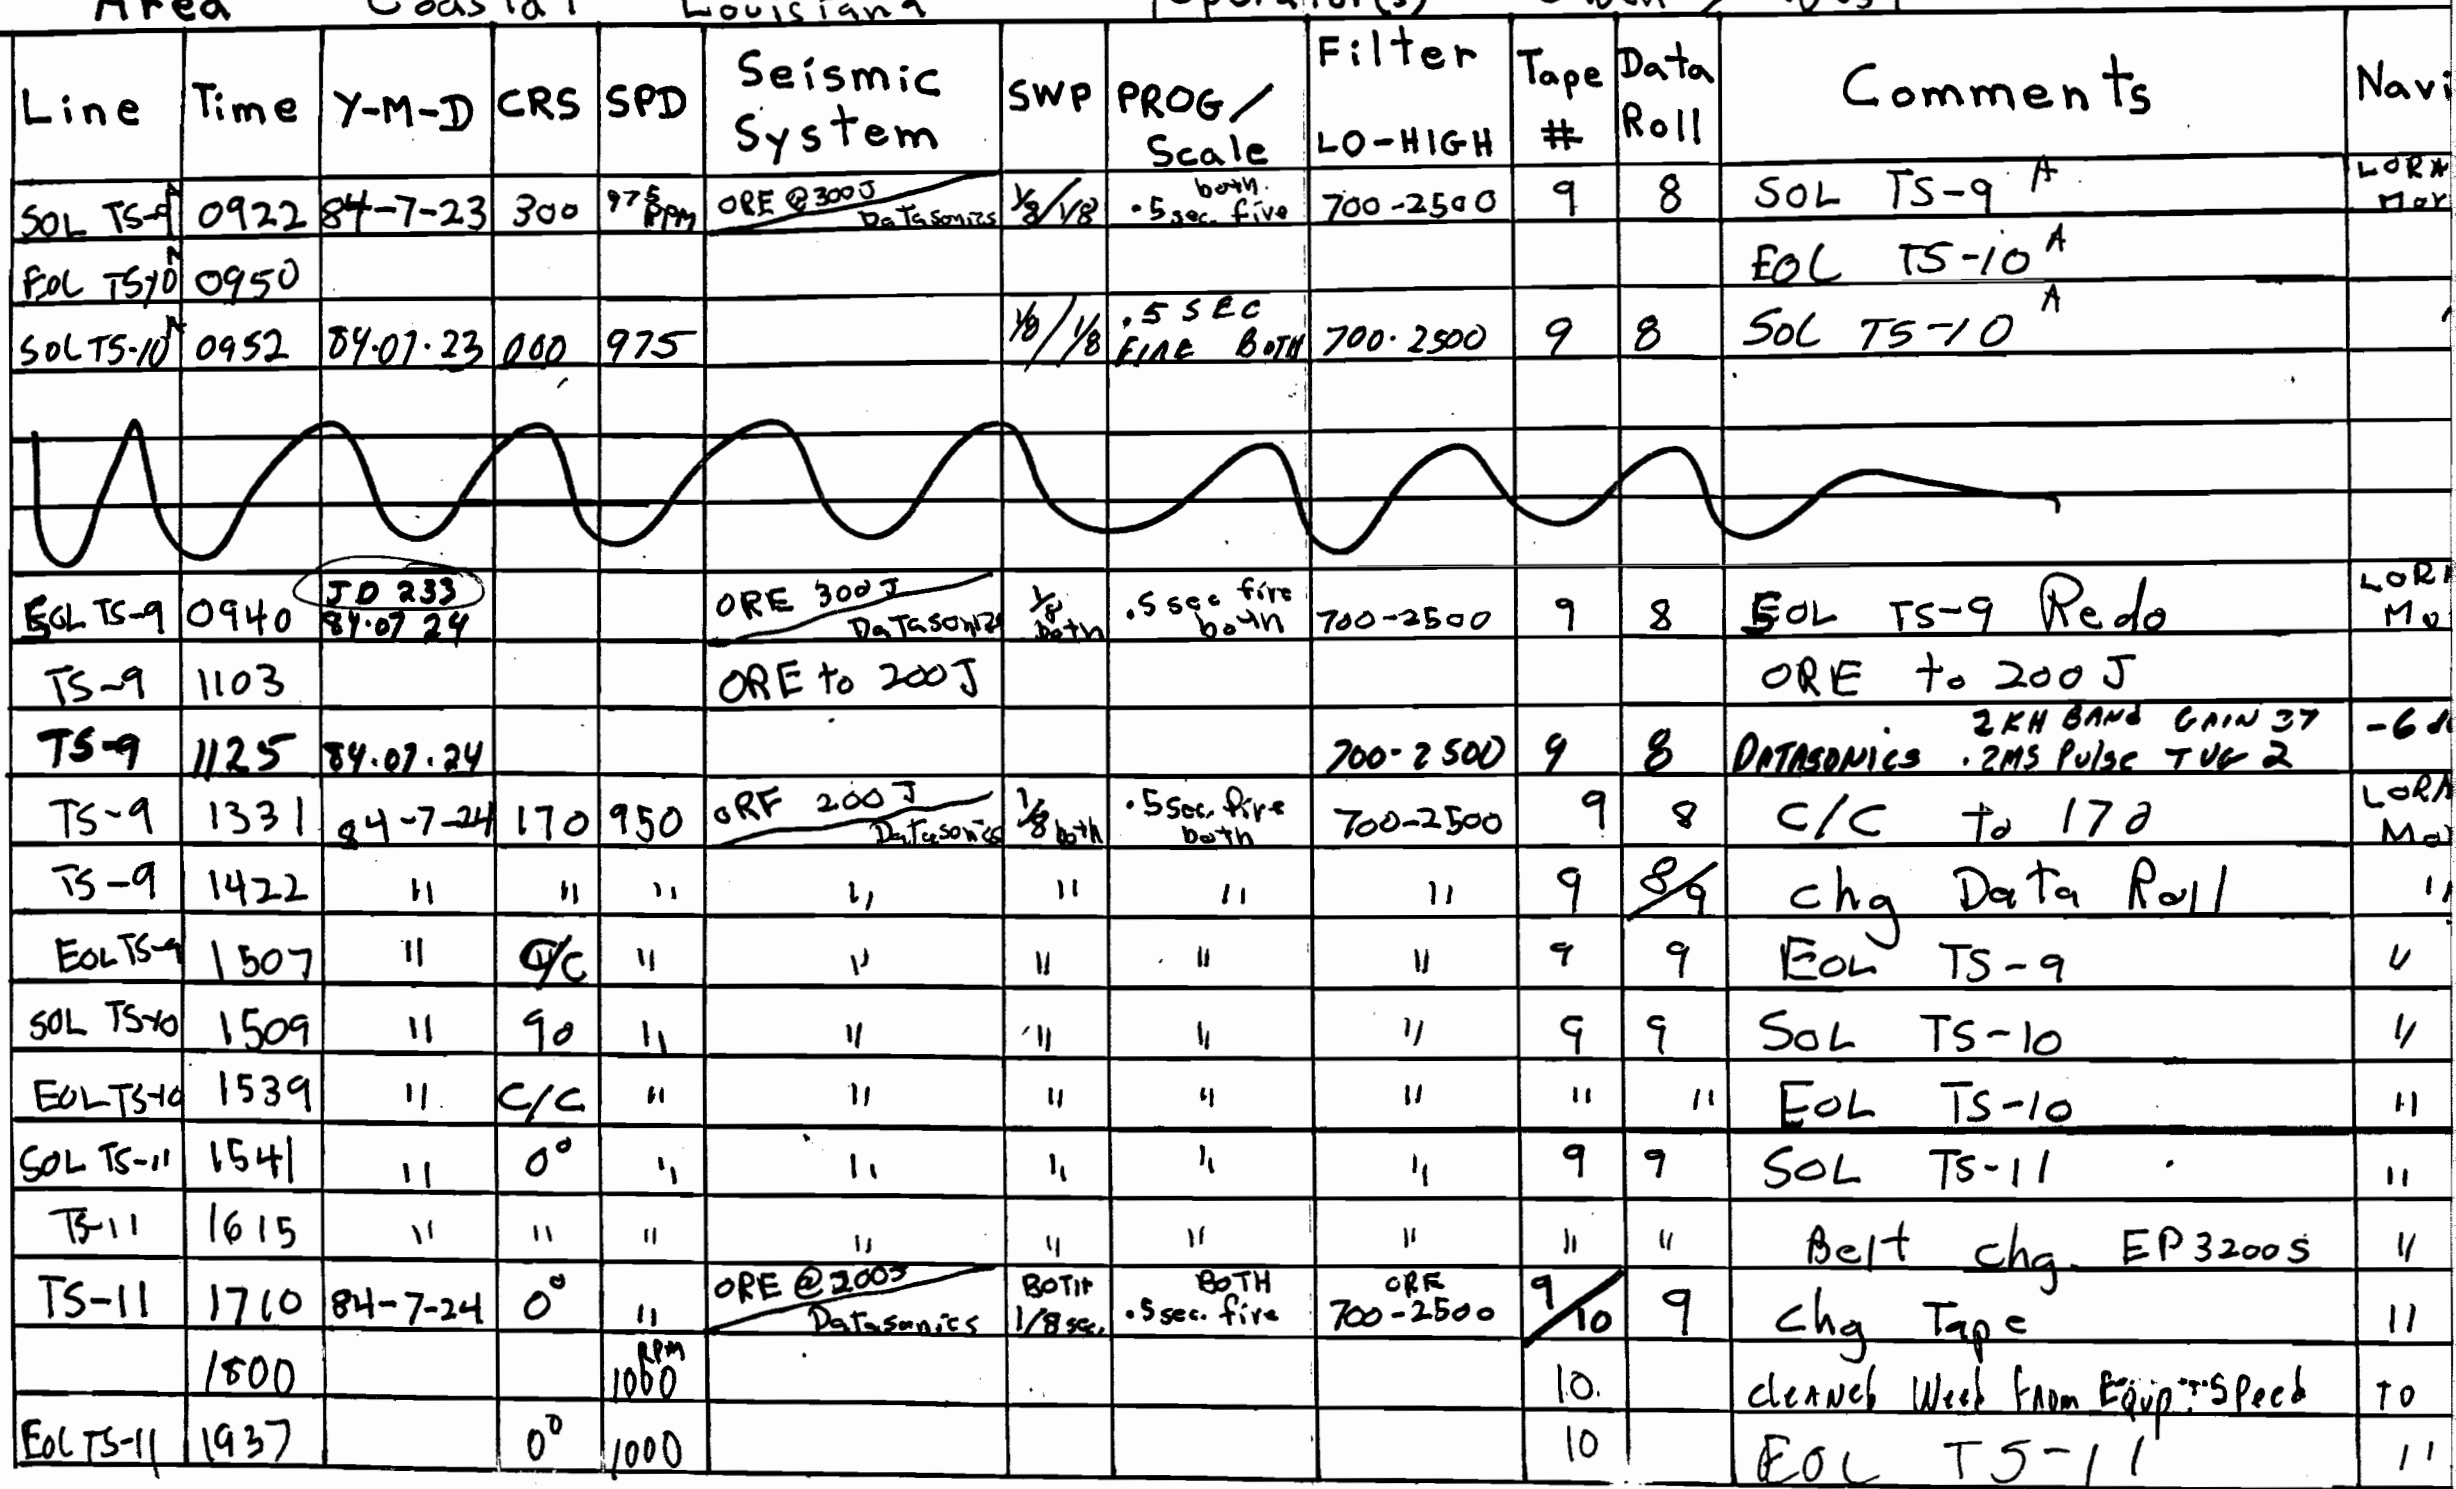 Area Coastal Louisiana Operator(s)
Line Time Y-M-D CRS SPD Seismic System SWP PROG/ Scale Filter LO-HIGH Tape # Data Roll Comments Navi
SOL TS-9A 0922 84-7-23 300 975 RPM ORE @ 300J / Datasonics 1/8 / 1/8 both .5 sec. five 700-2500 9 8 SOL TS-9 A LORA Mor
EOL TS-10A 0950 EOL TS-10 A
SOL TS-10A 0952 84.07.23 000 975 1/8 / 1/8 .5 SEC FIRE BOTH 700.2500 9 8 SOL TS-10 A
EOL TS-9 0940 JD 233 84.07 24 ORE 300J / Datasonics 1/8 both .5 sec fire both 700-2500 9 8 SOL TS-9 Redo LORA Mo
TS-9 1103 ORE to 200J ORE to 200J
TS-9 1125 84.07.24 700-2500 9 8 DATASONICS 2 KH BAND GAIN 37 .2MS Pulse TVG 2 -6 d
TS-9 1331 84-7-24 170 950 ORE 200J / Datasonics 1/8 both .5 sec. fire both 700-2500 9 8 C/C to 170 LORA Mo
TS-9 1422 " " " " " " " 9 8/9 chg Data Roll "
EOL TS-9 1507 " C/C " " " " " 9 9 EOL TS-9 "
SOL TS-10 1509 " 90 " " " " " 9 9 SOL TS-10 "
EOL TS-10 1539 " C/C " " " " " " " EOL TS-10 "
SOL TS-11 1541 " 0° " " " " " 9 9 SOL TS-11 "
TS-11 1615 " " " " " " " " " Belt chg. EP3200S "
TS-11 1710 84-7-24 0° " ORE @ 200J / Datasonics BOTH 1/8 sec. BOTH .5 sec. five ORE 700-2500 9/10 9 chg Tape "
1800 RPM 1000 10. cleaned Weed from Equip. Speed TO
EOL TS-11 1937 0° 1000 10 EOL TS-11 "